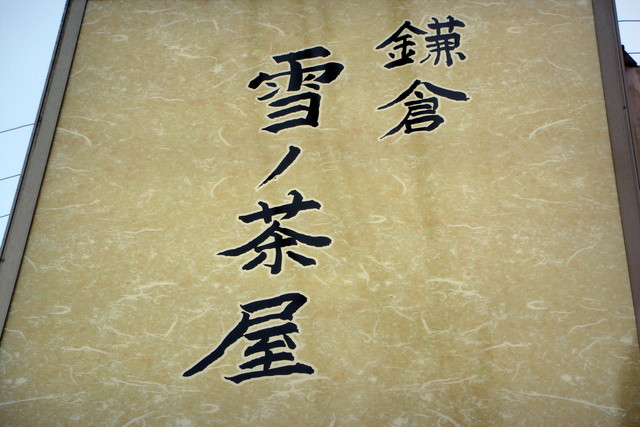 鎌倉
雪ノ茶屋